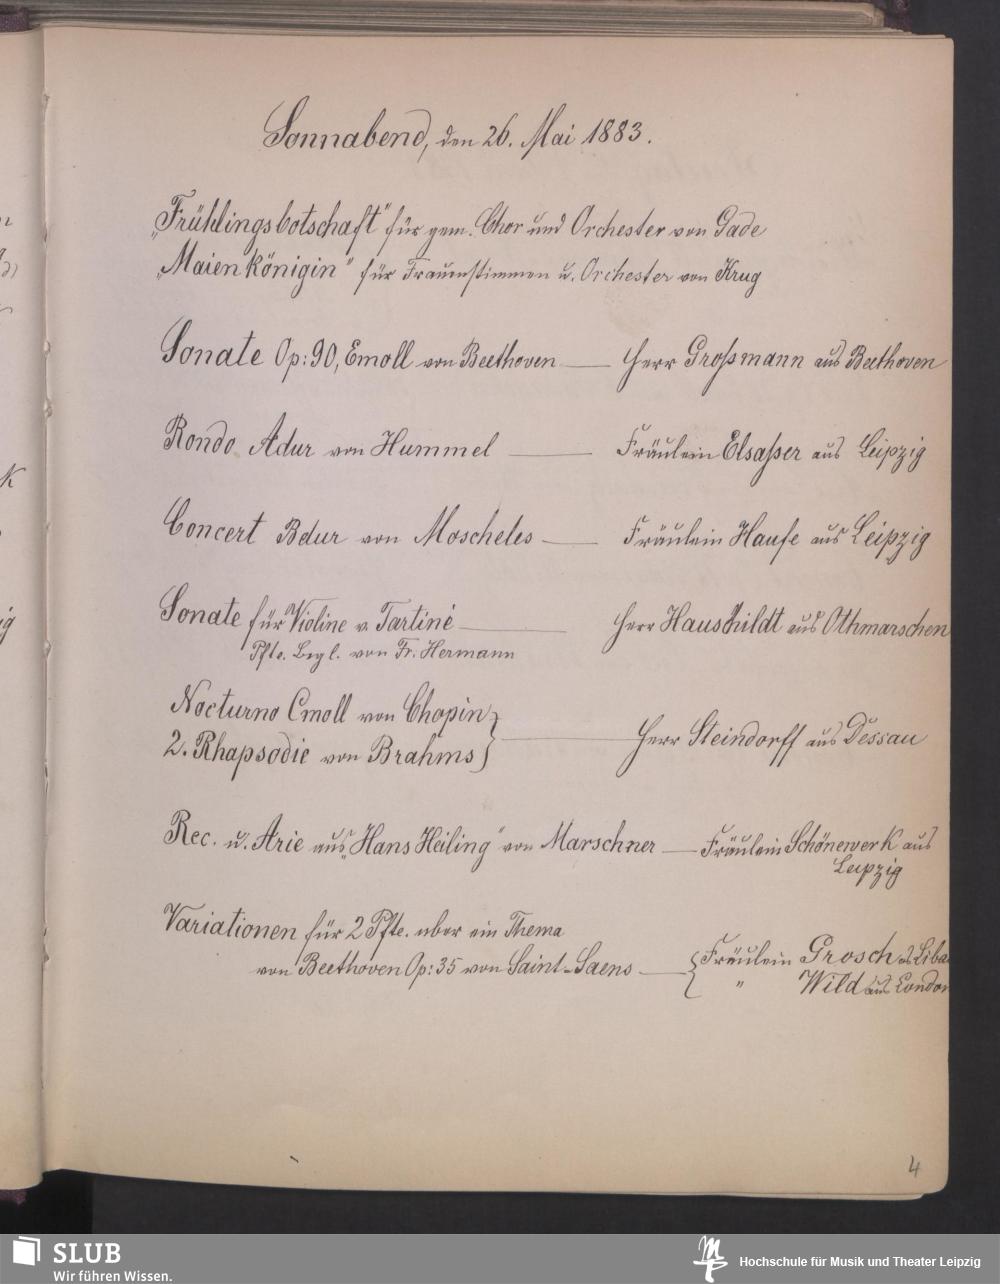 Sonnabend, den 26. Mai 1883.
„Frühlingsbotschaft" für gem. Chor und Orchester von Gade
„Maienkönigin" für Frauenstimmen u. Orchester von Krug
Sonate Op: 90, Emoll von Beethoven — Herr Großmann aus Beethoven
Rondo Adur von Hummel — Fräulein Elsaßer aus Leipzig
Concert Bdur von Moscheles — Fräulein Haufe aus Leipzig
Sonate für Violine v. Tartini — Herr Hauschildt aus Othmarschen
Pfte. Begl. von Fr. Hermann
Nocturno Cmoll von Chopin
2. Rhapsodie von Brahms } — Herr Steindorff aus Dessau
Rec. u. Arie aus „Hans Heiling" von Marschner — Fräulein Schönewerk aus
Leipzig
Variationen für 2 Pfte. uber ein Thema
von Beethoven Op: 35 von Saint-Saens — { Fräulein Grosch as Liba
" Wild aus London
4
SLUB
Wir führen Wissen.
Hochschule für Musik und Theater Leipzig